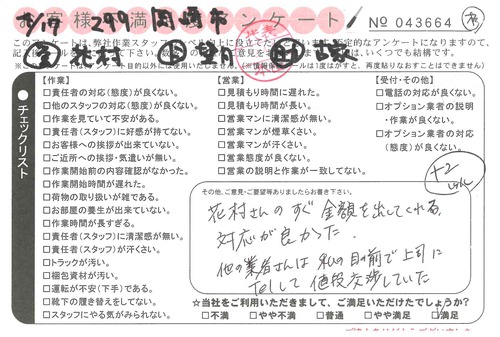 お客様満足アンケート
8/17 299 岡崎市
No 043664
花村
【作業】
□責任者の対応(態度)が良くない。
□他のスタッフの対応(態度)が良くない。
□作業を見ていて不安がある。
□責任者(スタッフ)に好感が持てない。
□お客様への挨拶が出来ていない。
□ご近所への挨拶・気遣いが無い。
□作業開始前の内容確認がなかった。
□作業開始時間が遅れた。
□荷物の取り扱いが雑である。
□お部屋の養生が出来ていない。
□作業時間が長すぎる。
□責任者(スタッフ)に清潔感が無い。
□責任者(スタッフ)が汗くさい。
□トラックが汚い。
□梱包資材が汚い。
□運転が不安(下手)である。
□靴下の履き替えをしてない。
□スタッフにやる気がみられない。
チェックリスト
【営業】
□見積もり時間に遅れた。
□見積もり時間が長い。
□営業マンに清潔感が無い。
□営業マンが煙草くさい。
□営業マンが汗くさい。
□営業態度が良くない。
□営業の説明と作業が一致してない。
【受付・その他】
□電話の対応が良くない。
□オプション業者の説明
・作業が良くない。
□オプション業者の対応
(態度)が良くない。
その他、ご意見・ご要望等ありましたらお書き下さい。
花村さんのすぐ金額を出してくれる
対応が良かった.
他の業者さんは私の目の前で上司に
Telして値段交渉していた
☆当社をご利用いただきまして、ご満足いただけたでしょうか?
□不満 □やや不満 □普通 □やや満足 □満足